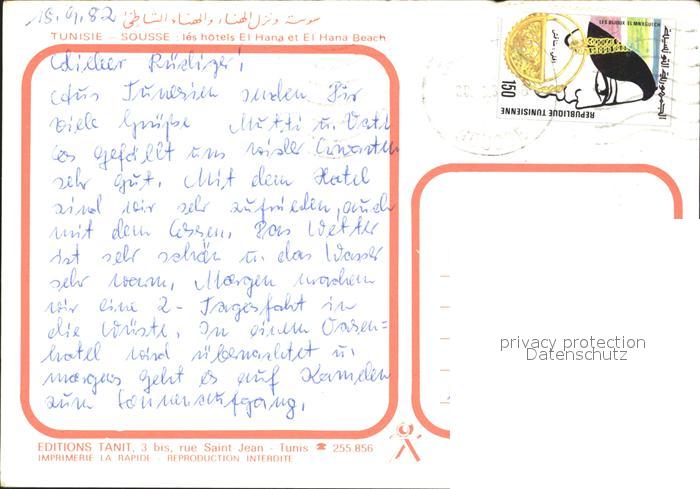 15.9.82
سوسة ونزل الهناء والهناء الشاطئ
TUNISIE - SOUSSE : lés hôtels El Hana et El Hana Beach
Lieber Rüdiger!
Aus Tunesien senden Dir
viele Grüße Mutti u. Vati
Es gefällt uns wider Erwarten
sehr gut. Mit dem Hotel
sind wir sehr zufrieden, auch
mit dem Essen. Das Wetter
ist sehr schön u. das Wasser
sehr warm. Morgen machen
wir eine 2-Tagesfahrt in
die Wüste. In einem Oasen=
hotel wird übernachtet u.
morgens geht es auf Kamelen
zum Sonnenaufgang.
EDITIONS TANIT, 3 bis, rue Saint Jean - Tunis ☎ 255.856
IMPRIMERIE LA RAPIDE - REPRODUCTION INTERDITE
LES BIJOUX EL MNAGUECH
150
REPUBLIQUE TUNISIENNE
الجمهورية التونسية
privacy protection
Datenschutz